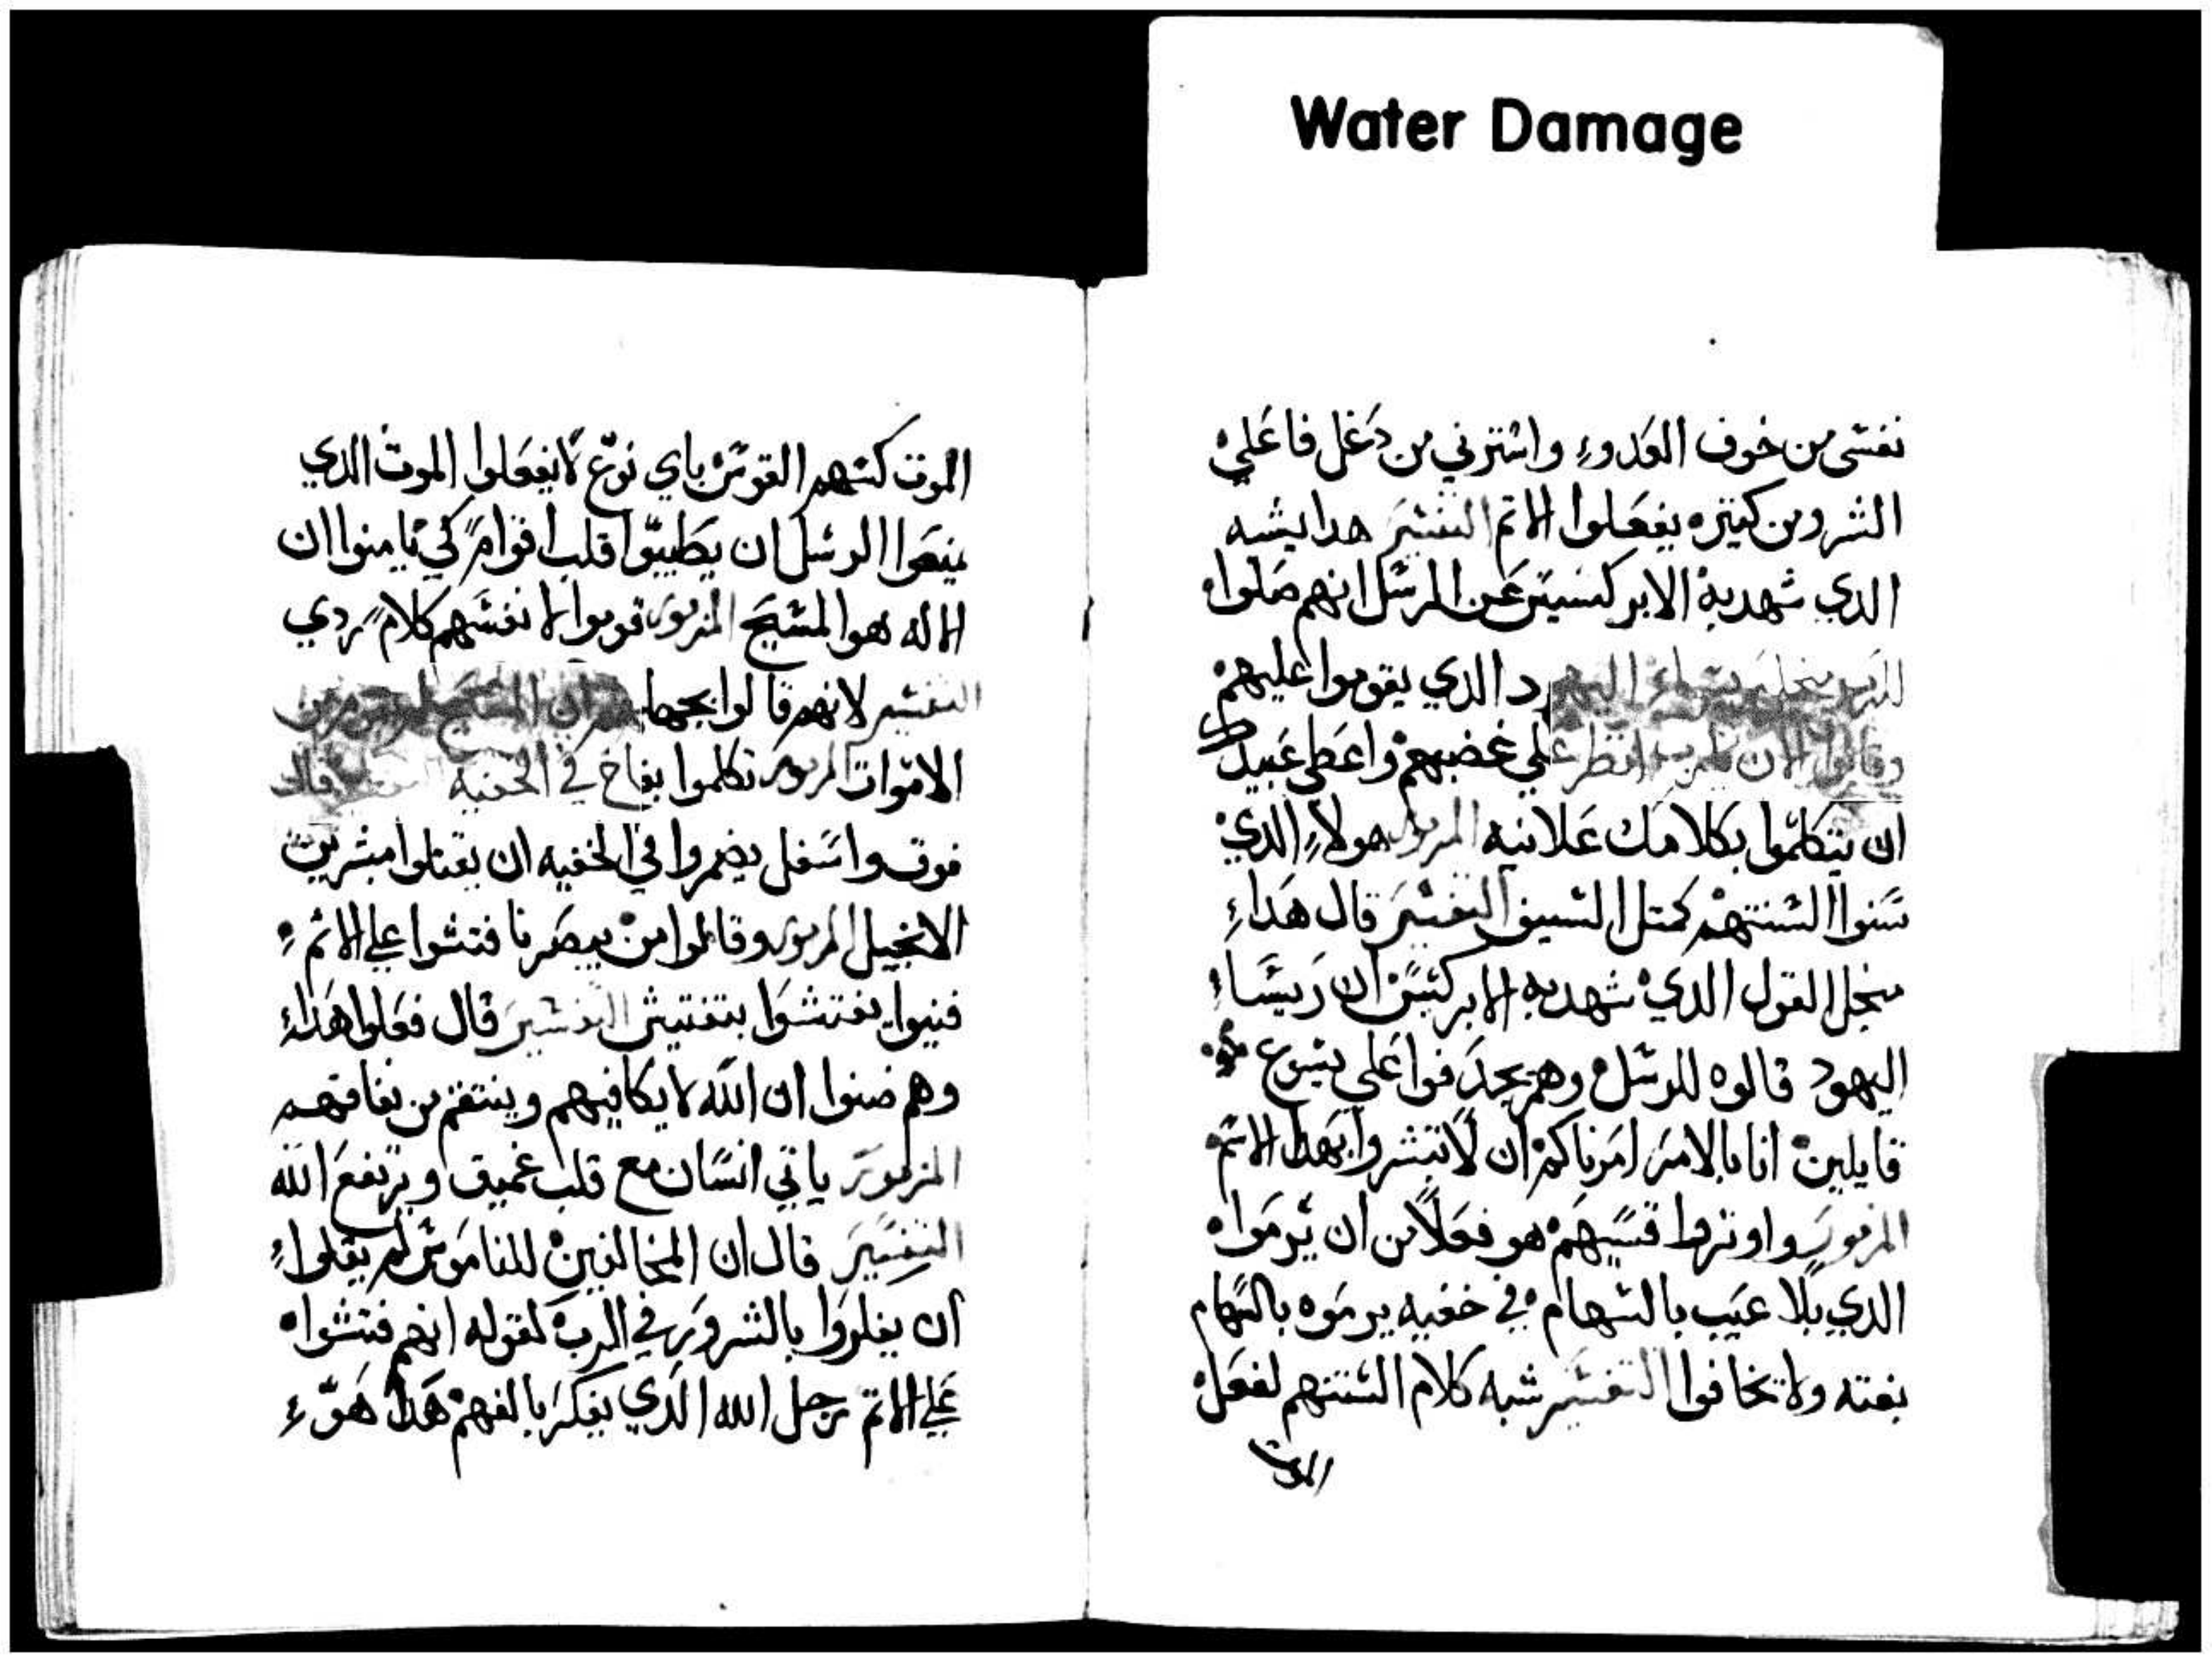 Water Damage
نفسى من خوف العدوء واسترني من دغل فاعلي
الشر ومن كتيره يفعلوا الاتم التفسير هدا يشبه
الدي شهد به الابركسيس عن الرسل انهم صلوا
يشوع اليهود الدي يقوموا عليهم
وقالوا الان انظر علي غضبهم واعطي عبيدك
ان يتكلموا بكلامك علانيه المزمور هولاء الدي
سنوا السنتهم كمتل السيف التفسير قال هداء
منجل القول الدي شهد به الابركسيس ان ريساء
اليهود قالوه للرسل وهم يجدفوا علي يشوع
قايلين انا بالامر امرناكم ان لا تبشروا بهدا الاسم
المزمور واوتروا قسيهم هو فعلا من ان يرموا
الدي بلا عيب بالسهام في خفيه يرموه بالسهام
بغته ولا يخافوا التفسير شبه كلام السنتهم لفعل
الموت
الموت كسهم القوس باي نوع لانفعلوا الموت الدي
منعوا الرسل ان يطيبوا قلب اقوام كي يامنوا ان
الاله هو المسيح المزمور قوموا لانفسهم كلام ردي
التفسير لانهم قالوا بجهل ان المسيح لم يقوم من
الاموات المزمور تكلموا بفاخ في الخفيه قال
فوق واسفل يضمروا في الخفيه ان يقتلوا مبشرين
الانجيل المزمور وقالوا من يبصرنا فتشوا علي الاتم
فنيوا يفتشوا بتفتيش التفسير قال فعلوا هداء
وهم ضنوا ان الله لا يكافيهم وينتقم من نفاقهم
المزمور ياتي انسان مع قلب عميق ويرتفع الله
التفسير قال ان المخالفين للناموس لم يقلواء
ان يفكروا بالشرور في الرب لقوله انهم فتشوا
علي الاتم رجل الله الدي يفكر بالفهم هدا هوء